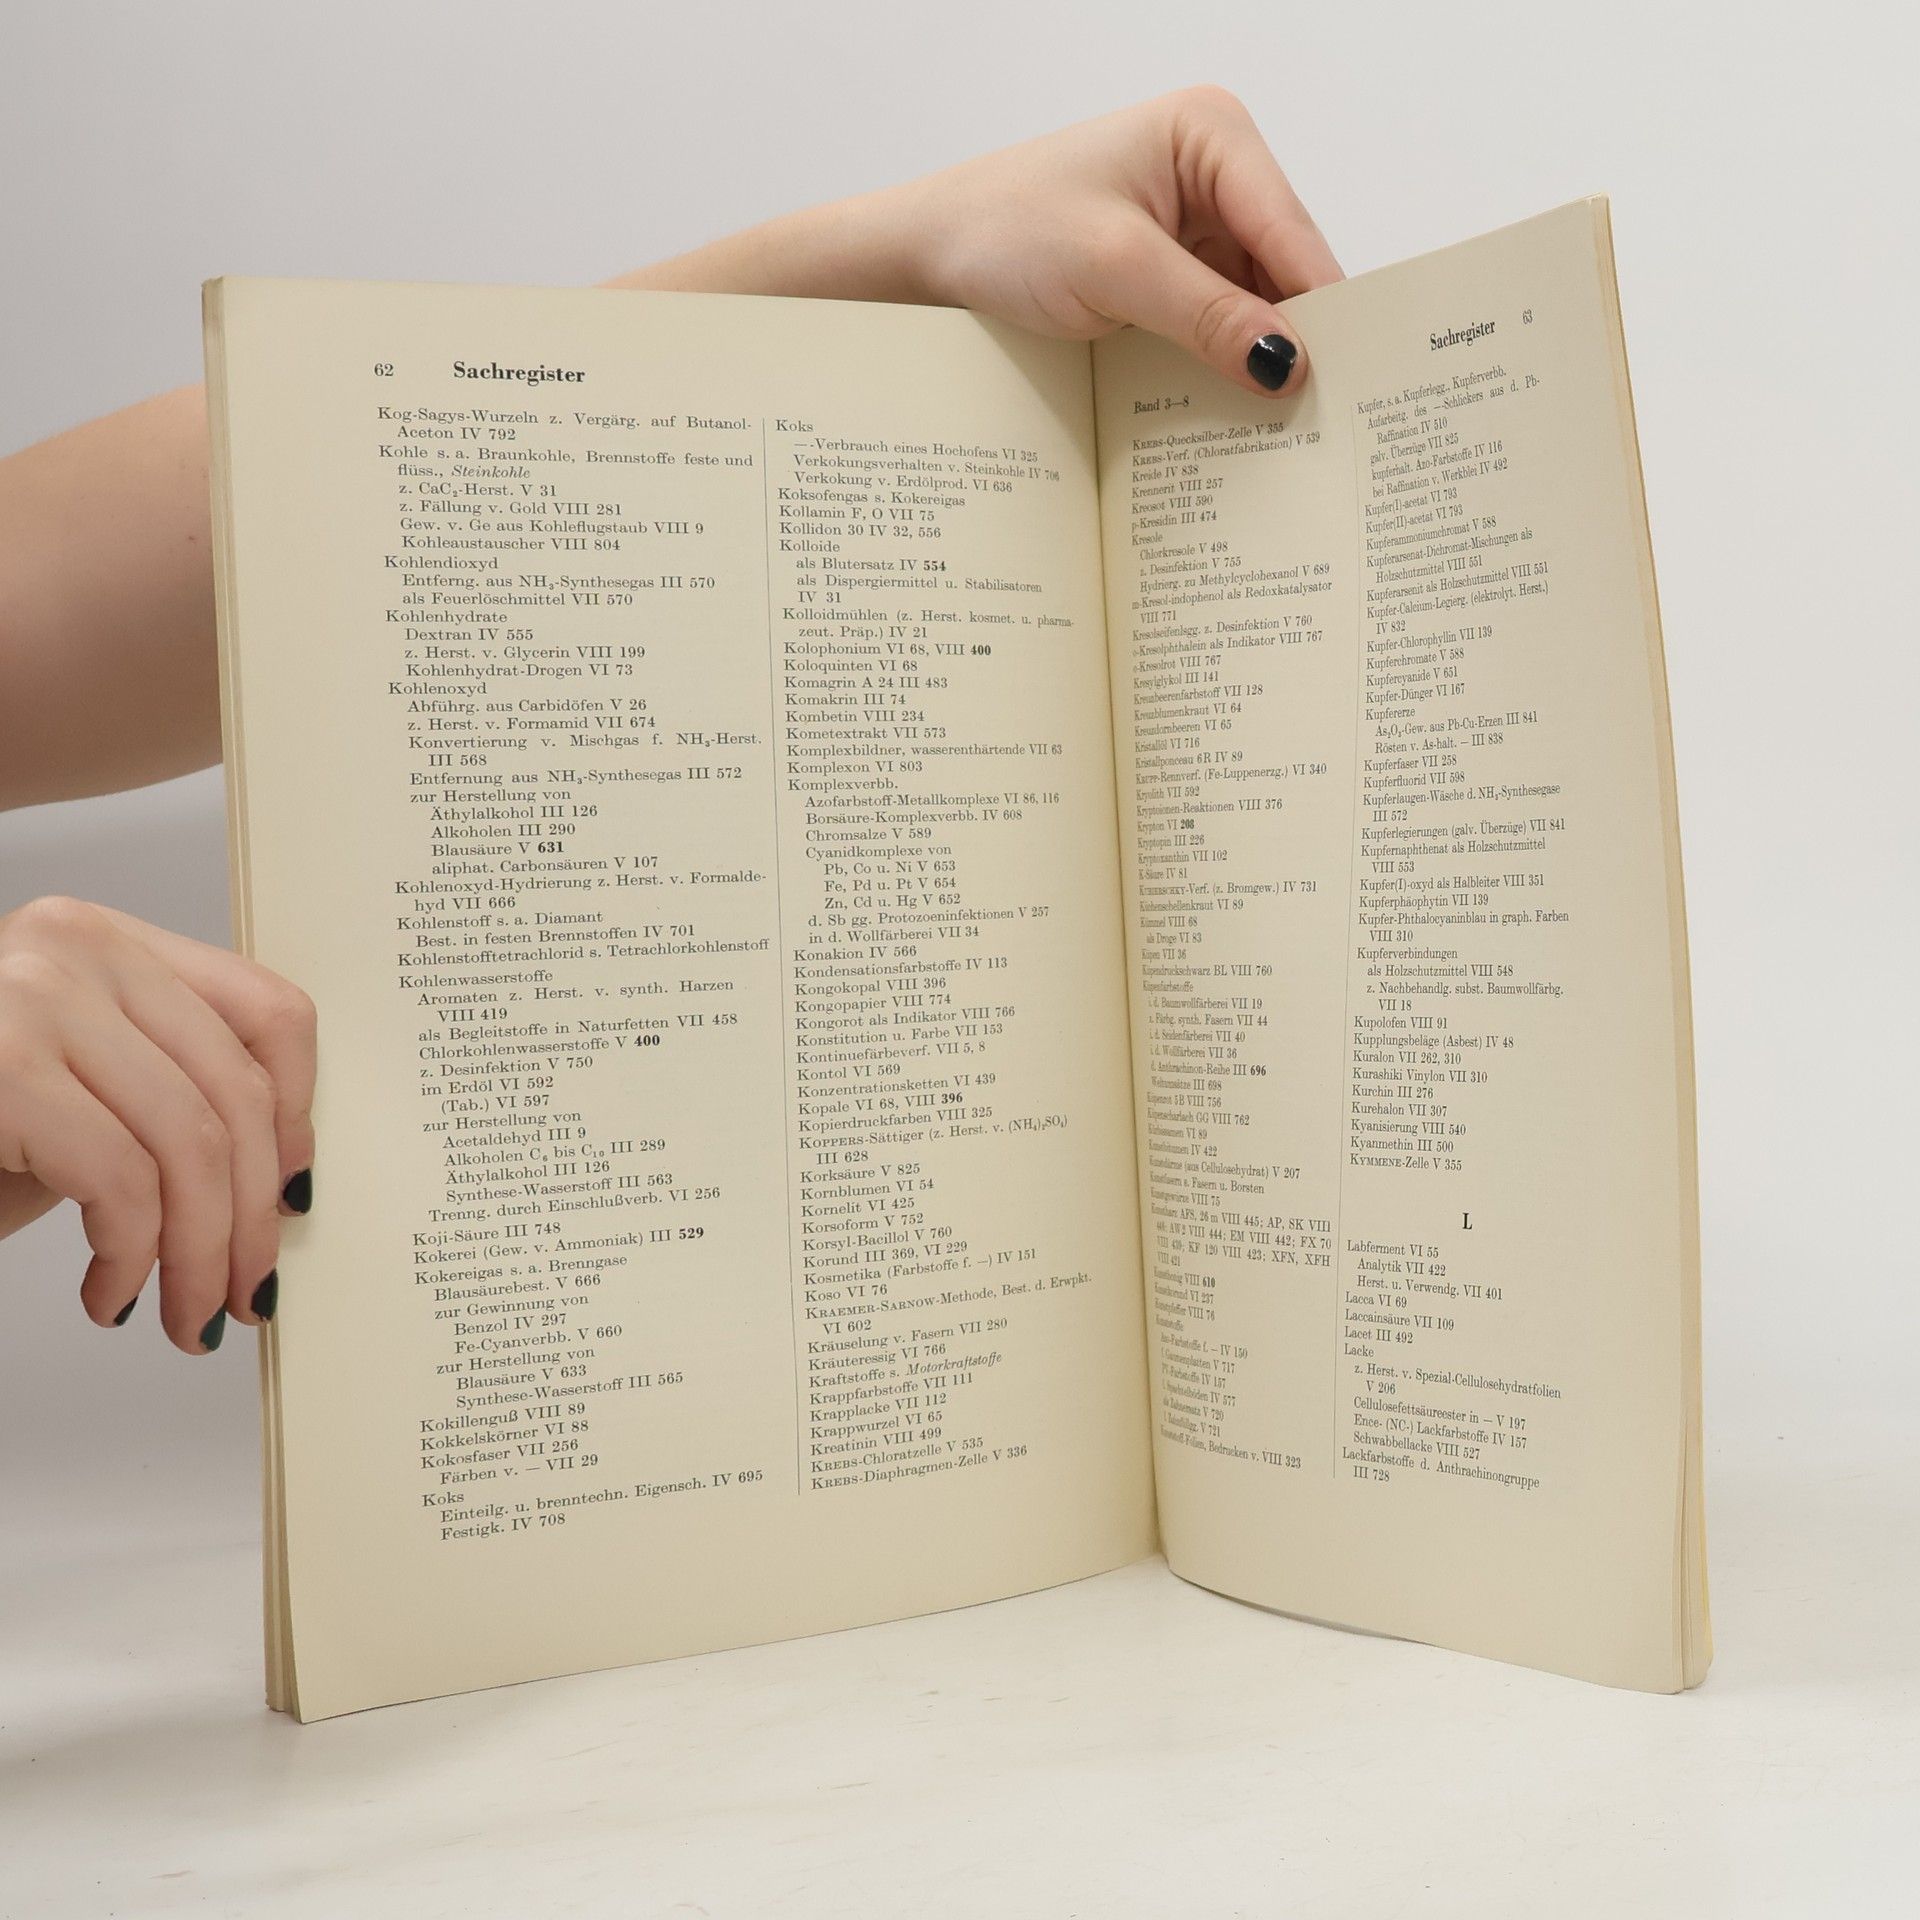 62 Sachregister
Kog-Sagys-Wurzeln z. Vergärg. auf Butanol-
Aceton IV 792
Kohle s. a. Braunkohle, Brennstoffe feste und
flüss., Steinkohle
z. CaC₂-Herst. V 31
z. Fällung v. Gold VIII 281
Gew. v. Ge aus Kohleflugstaub VIII 9
Kohleaustauscher VIII 804
Kohlendioxyd
Entferng. aus NH₃-Synthesegas III 570
als Feuerlöschmittel VII 570
Kohlenhydrate
Dextran IV 555
z. Herst. v. Glycerin VIII 199
Kohlenhydrat-Drogen VI 73
Kohlenoxyd
Abführg. aus Carbidöfen V 26
z. Herst. v. Formamid VII 674
Konvertierung v. Mischgas f. NH₃-Herst.
III 568
Entfernung aus NH₃-Synthesegas III 572
zur Herstellung von
Äthylalkohol III 126
Alkoholen III 290
Blausäure V 631
aliphat. Carbonsäuren V 107
Kohlenoxyd-Hydrierung z. Herst. v. Formalde-
hyd VII 666
Kohlenstoff s. a. Diamant
Best. in festen Brennstoffen IV 701
Kohlenstofftetrachlorid s. Tetrachlorkohlenstoff
Kohlenwasserstoffe
Aromaten z. Herst. v. synth. Harzen
VIII 419
als Begleitstoffe in Naturfetten VII 458
Chlorkohlenwasserstoffe V 400
z. Desinfektion V 750
im Erdöl VI 592
(Tab.) VI 597
zur Herstellung von
Acetaldehyd III 9
Alkoholen C₆ bis C₁₀ III 289
Äthylalkohol III 126
Synthese-Wasserstoff III 563
Trenng. durch Einschlußverb. VI 256
Koji-Säure III 748
Kokerei (Gew. v. Ammoniak) III 529
Kokereigas s. a. Brenngase
Blausäurebest. V 666
zur Gewinnung von
Benzol IV 297
Fe-Cyanverbb. V 660
zur Herstellung von
Blausäure V 633
Synthese-Wasserstoff III 565
Kokillenguß VIII 89
Kokkelskörner VI 88
Kokosfaser VII 256
Färben v. — VII 29
Koks
Einteilg. u. brenntechn. Eigensch. IV 695
Festigk. IV 708
Koks
—-Verbrauch eines Hochofens VI 325
Verkokungsverhalten v. Steinkohle IV 706
Verkokung v. Erdölprod. VI 636
Koksofengas s. Kokereigas
Kollamin F, O VII 75
Kollidon 30 IV 32, 556
Kolloide
als Blutersatz IV 554
als Dispergiermittel u. Stabilisatoren
IV 31
Kolloidmühlen (z. Herst. kosmet. u. pharma-
zeut. Präp.) IV 21
Kolophonium VI 68, VIII 400
Koloquinten VI 68
Komagrin A 24 III 483
Komakrin III 74
Kombetin VIII 234
Kometextrakt VII 573
Komplexbildner, wasserenthärtende VII 63
Komplexon VI 803
Komplexverbb.
Azofarbstoff-Metallkomplexe VI 86, 116
Borsäure-Komplexverbb. IV 608
Chromsalze V 589
Cyanidkomplexe von
Pb, Co u. Ni V 653
Fe, Pd u. Pt V 654
Zn, Cd u. Hg V 652
d. Sb gg. Protozoeninfektionen V 257
in d. Wollfärberei VII 34
Konakion IV 566
Kondensationsfarbstoffe IV 113
Kongokopal VIII 396
Kongopapier VIII 774
Kongorot als Indikator VIII 766
Konstitution u. Farbe VII 153
Kontinuefärbeverf. VII 5, 8
Kontol VI 569
Konzentrationsketten VI 439
Kopale VI 68, VIII 396
Kopierdruckfarben VIII 325
KOPPERS-Sättiger (z. Herst. v. (NH₄)₂SO₄)
III 628
Korksäure V 825
Kornblumen VI 54
Kornelit VI 425
Korsoform V 752
Korsyl-Bacillol V 760
Korund III 369, VI 229
Kosmetika (Farbstoffe f. —) IV 151
Koso VI 76
KRAEMER-SARNOW-Methode, Best. d. Erwpkt.
VI 602
Kräuselung v. Fasern VII 280
Kräuteressig VI 766
Kraftstoffe s. Motorkraftstoffe
Krappfarbstoffe VII 111
Krapplacke VII 112
Krappwurzel VI 65
Kreatinin VIII 499
KREBS-Chloratzelle V 535
KREBS-Diaphragmen-Zelle V 336
Band 3—8 Sachregister 63
KREBS-Quecksilber-Zelle V 355
KREBS-Verf. (Chloratfabrikation) V 539
Kreide IV 838
Krennerit VIII 257
Kreosot VIII 590
p-Kresidin III 474
Kresole
Chlorkresole V 498
z. Desinfektion V 755
Hydrierg. zu Methylcyclohexanol V 689
m-Kresol-indophenol als Redoxkatalysator
VIII 771
Kresolseifenlsgg. z. Desinfektion V 760
o-Kresolphthalein als Indikator VIII 767
o-Kresolrot VIII 767
Kresylglykol III 141
Kreuzbeerenfarbstoff VII 128
Kreuzblumenkraut VI 64
Kreuzdornbeeren VI 65
Kristallöl VI 716
Kristallponceau 6R IV 89
KRUPP-Rennverf. (Fe-Luppenerzg.) VI 340
Kryolith VII 592
Kryptoionen-Reaktionen VIII 376
Krypton VI 208
Kryptopin III 226
Kryptoxanthin VII 102
K-Säure IV 81
KUBIERSCHKY-Verf. (z. Bromgew.) IV 731
Küchenschellenkraut VI 89
Kümmel VIII 68
als Droge VI 83
Küpen VII 36
Küpendruckschwarz BL VIII 760
Küpenfarbstoffe
i. d. Baumwollfärberei VII 19
z. Färbg. synth. Fasern VII 44
i. d. Seidenfärberei VII 40
i. d. Wollfärberei VII 36
d. Anthrachinon-Reihe III 696
Weltumsätze III 698
Küpenrot 5B VIII 756
Küpenscharlach GG VIII 762
Kürbissamen VI 89
Kunstbitumen IV 422
Kunstdärme (aus Cellulosehydrat) V 207
Kunstfasern s. Fasern u. Borsten
Kunstgewürze VIII 75
Kunstharz AFS, 26 m VIII 445; AP, SK VIII
446; AW2 VIII 444; EM VIII 442; FX 70
VIII 439; KF 120 VIII 423; XFN, XFH
VIII 421
Kunsthonig VIII 610
Kunstkorund VI 237
Kunstpfeffer VIII 76
Kunststoffe
Azo-Farbstoffe f. — IV 150
f. Gaumenplatten V 717
IV 157
IV 577
als Zahnersatz V 720
V 721
Kunststoff-Folien, Bedrucken v. VIII 323
Kupfer, s. a. Kupferlegg., Kupferverbb.
Aufarbeitg. des —-Schlickers aus d. Pb-
Raffination IV 510
galv. Überzüge VII 825
kupferhalt. Azo-Farbstoffe IV 116
bei Raffination v. Werkblei IV 492
Kupfer(I)-acetat VI 793
Kupfer(II)-acetat VI 793
Kupferammoniumchromat V 588
Kupferarsenat-Dichromat-Mischungen als
Holzschutzmittel VIII 551
Kupferarsenit als Holzschutzmittel VIII 551
Kupfer-Calcium-Legierg. (elektrolyt. Herst.)
IV 832
Kupfer-Chlorophyllin VII 139
Kupferchromate V 588
Kupfercyanide V 651
Kupfer-Dünger VI 167
Kupfererze
As₂O₃-Gew. aus Pb-Cu-Erzen III 841
Rösten v. As-halt. — III 838
Kupferfaser VII 258
Kupferfluorid VII 598
Kupferlaugen-Wäsche d. NH₃-Synthesegase
III 572
Kupferlegierungen (galv. Überzüge) VII 841
Kupfernaphthenat als Holzschutzmittel
VIII 553
Kupfer(I)-oxyd als Halbleiter VIII 351
Kupferphäophytin VII 139
Kupfer-Phthalocyaninblau in graph. Farben
VIII 310
Kupferverbindungen
als Holzschutzmittel VIII 548
z. Nachbehandlg. subst. Baumwollfärbg.
VII 18
Kupolofen VIII 91
Kupplungsbeläge (Asbest) IV 48
Kuralon VII 262, 310
Kurashiki Vinylon VII 310
Kurchin III 276
Kurehalon VII 307
Kyanisierung VIII 540
Kyanmethin III 500
KYMMENE-Zelle V 355
L
Labferment VI 55
Analytik VII 422
Herst. u. Verwendg. VII 401
Lacca VI 69
Laccainsäure VII 109
Lacet III 492
Lacke
z. Herst. v. Spezial-Cellulosehydratfolien
V 206
Cellulosefettsäureester in — V 197
Ence- (NC-) Lackfarbstoffe IV 157
Schwabbellacke VIII 527
Lackfarbstoffe d. Anthrachinongruppe
III 728